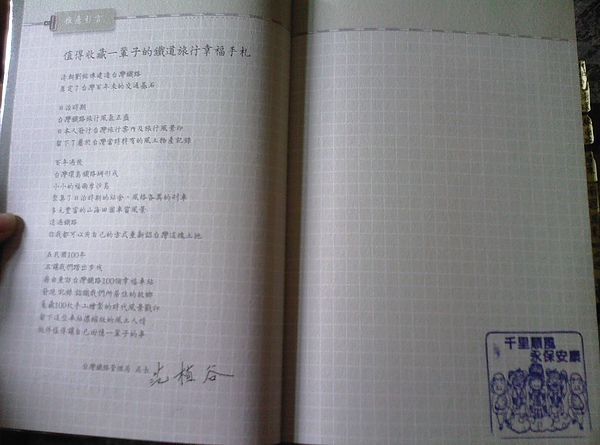 推薦引言
值得收藏一輩子的鐵道旅行幸福手札
清朝劉銘傳建造台灣鐵路
奠定了台灣百年來的交通基石
日治時期
台灣鐵路旅行風氣正盛
日本人發行台灣旅行案內及旅行風景印
留下了屬於台灣當時特有的風土物產記錄
百年過後
台灣環島鐵路網形成
小小的福爾摩沙島
聚集了日治時期的站舍、風格各異的列車
多元豐富的山海田園車窗風景
透過鐵路
你我都可以用自己的方式重新認台灣這塊土地
在民國100年
且讓我們踏出步伐
藉由重訪台灣鐵路100個幸福車站
發現 記錄 認識我們所居住的故鄉
蒐藏100枚手工繪製的時代風景戳印
留下這些車站濃縮版的風土人情
做件值得讓自己回憶一輩子的事
台灣鐵路管理局 局長 范植谷
千里順風
永保安康